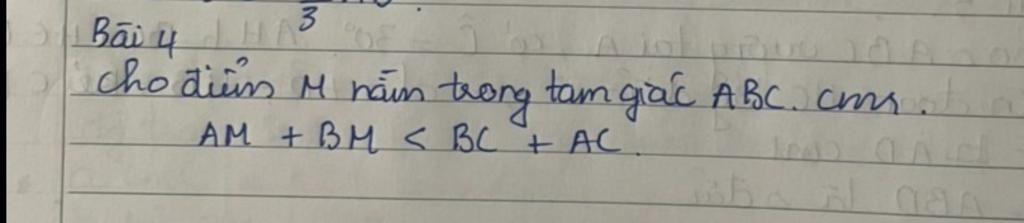 3
Bài 4
Cho điểm M nằm trong tam giác ABC. cmr.
AM + BM < BC + AC.